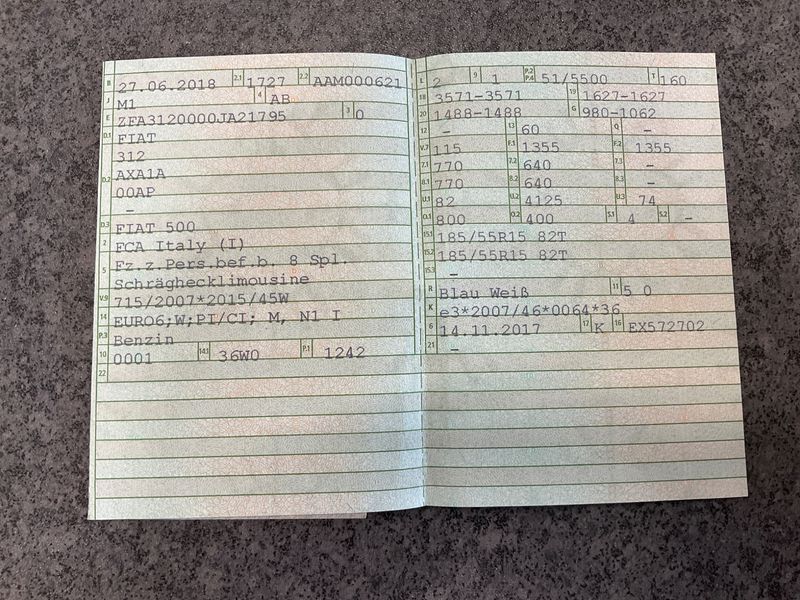 B 27.06.2018 2.1 1727 2.2 AAM000621
J M1 4 AB
E ZFA3120000JA21795 3 0
D.1 FIAT
312
D.2 AXA1A
00AP
–
D.3 FIAT 500
2 FCA Italy (I)
5 Fz.z.Pers.bef.b. 8 Spl.
Schräghecklimousine
V.9 715/2007*2015/45W
14 EURO6;W;PI/CI; M, N1 I
P.3 Benzin
10 0001 14.1 36W0 P.1 1242
22
L 2 9 1 P.2 P.4 51/5500 T 160
18 3571-3571 19 1627-1627
20 1488-1488 G 980-1062
12 – 13 60 Q –
V.7 115 F.1 1355 F.2 1355
7.1 770 7.2 640 7.3 –
8.1 770 8.2 640 8.3 –
U.1 82 U.2 4125 U.3 74
O.1 800 O.2 400 S.1 4 S.2 –
15.1 185/55R15 82T
15.2 185/55R15 82T
15.3 –
R Blau Weiß 11 5 0
K e3*2007/46*0064*36
6 14.11.2017 17 K 16 EX572702
21 –